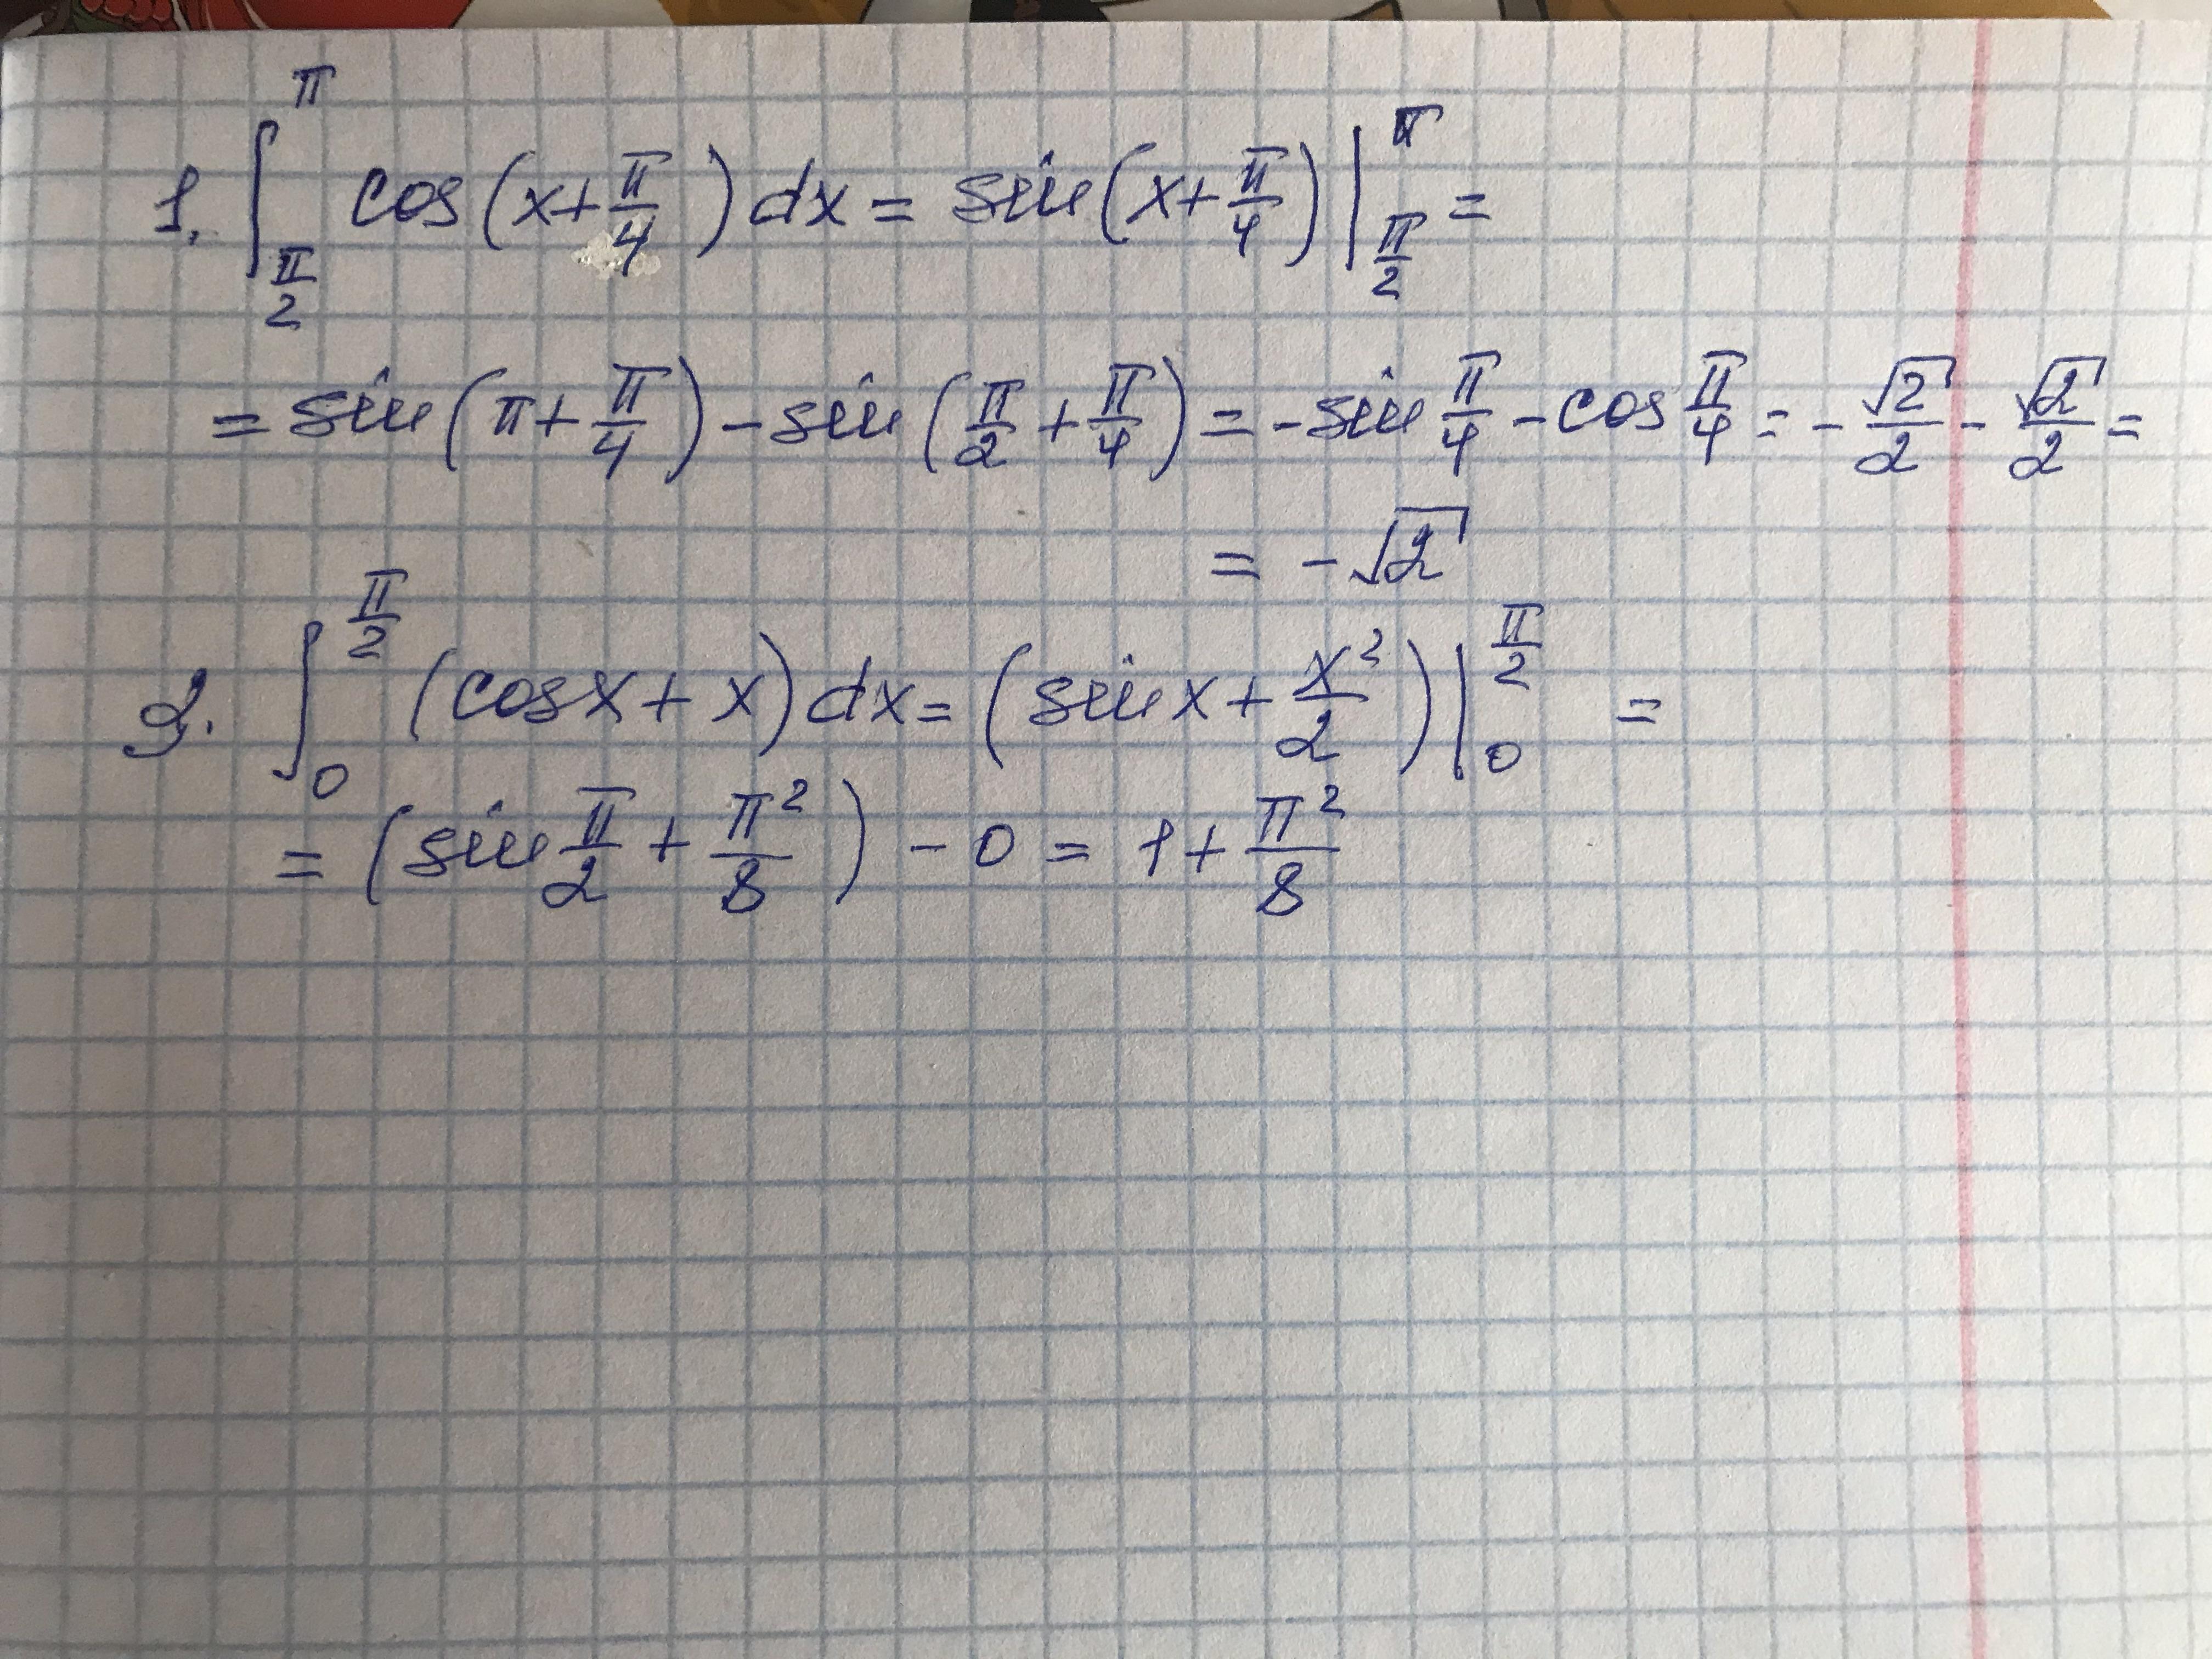 1. ∫_{π/2}^{π} cos(x+π/4)dx = sin(x+π/4)|_{π/2}^{π} =
= sin(π+π/4) - sin(π/2+π/4) = -sin π/4 - cos π/4 = -√2/2 - √2/2 =
= -√2
2. ∫_{0}^{π/2} (cosx+x)dx = (sinx+x²/2)|_{0}^{π/2} =
= (sin π/2 + π²/8) - 0 = 1+π²/8